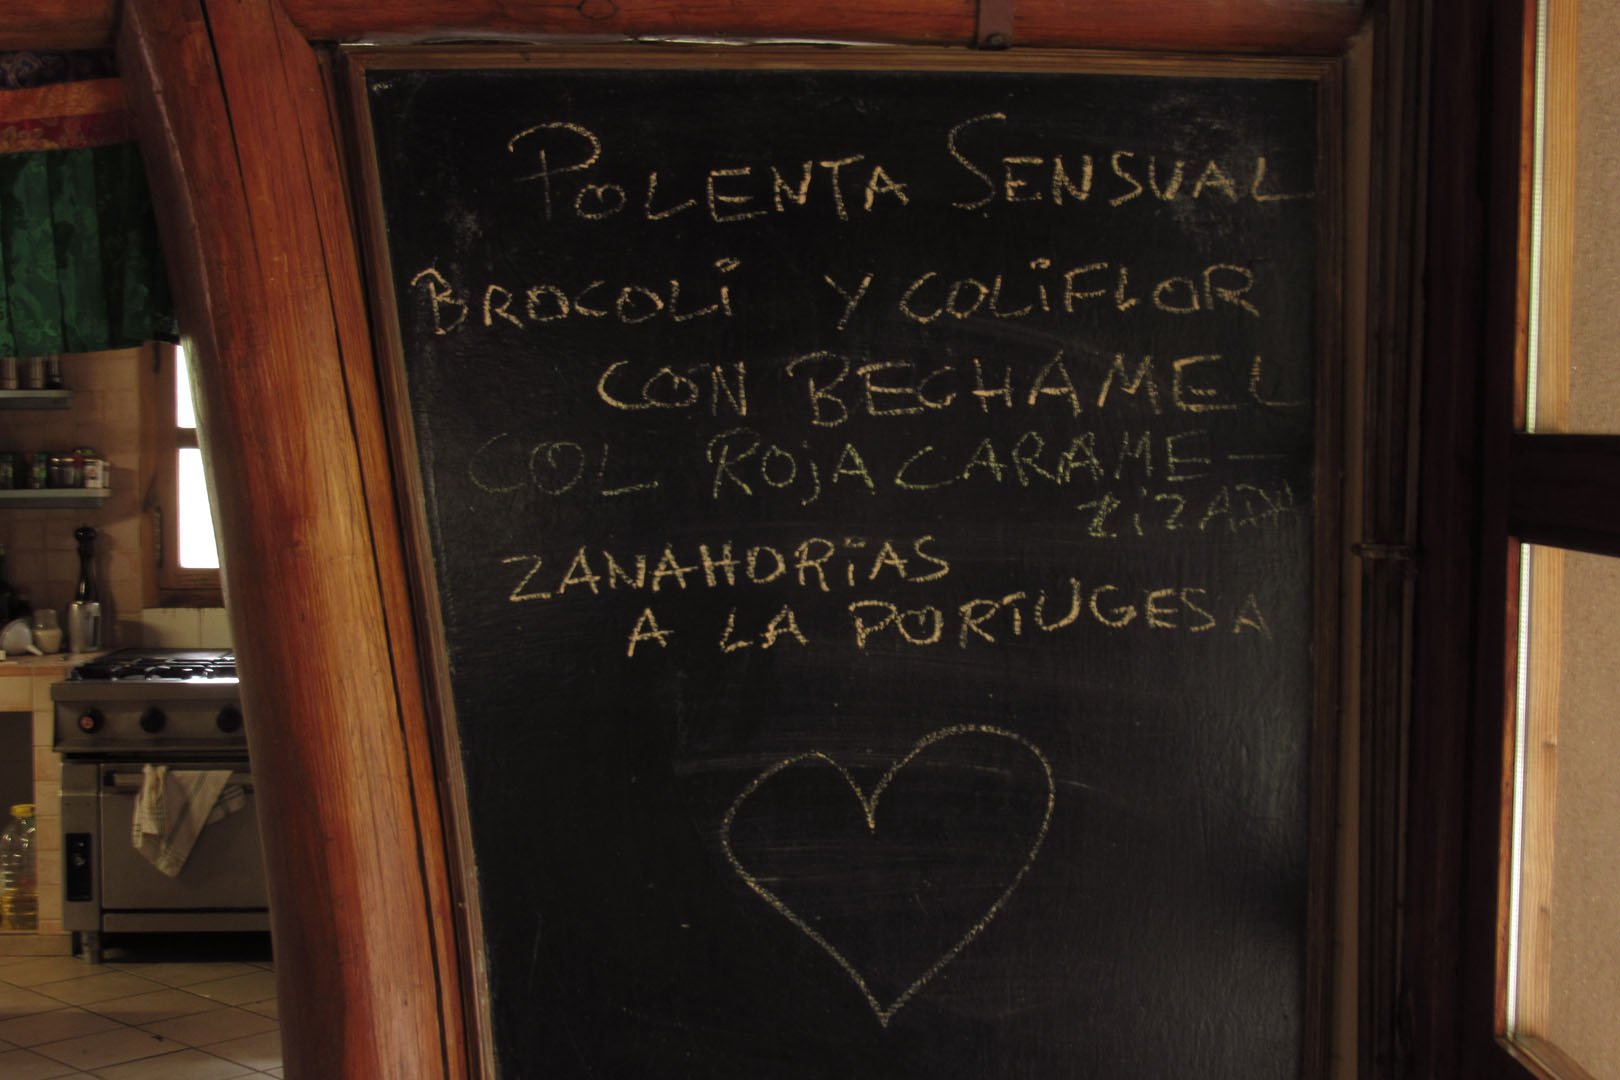 POLENTA SENSUAL
BROCOLi Y COLiFLOR
CON BECHAMEL
COL ROjA CARAME-
ZiZADA
ZANAHORiAS
A LA PORTUGESA